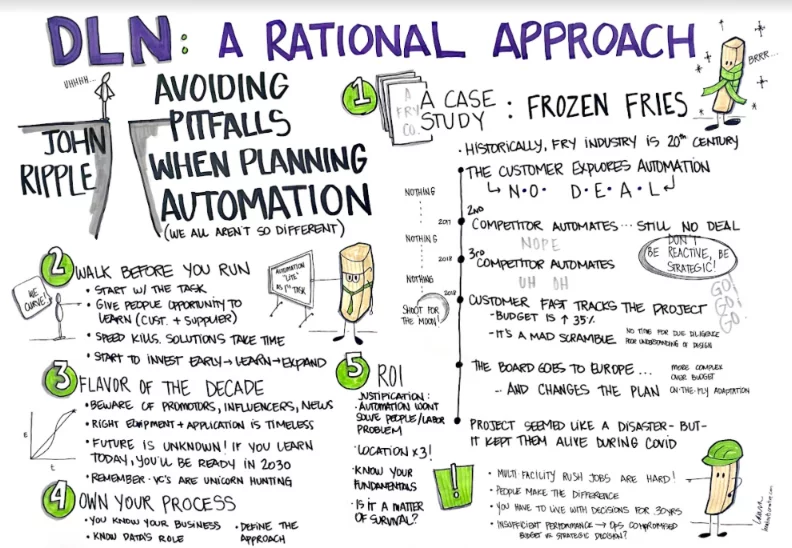 DLN: A RATIONAL APPROACH
UHHHH...
JOHN
RIPPLE
AVOIDING
PITFALLS
WHEN PLANNING
AUTOMATION
(WE ALL AREN'T SO DIFFERENT)
1
A
FRY
CO.
A CASE
STUDY : FROZEN FRIES
BRRR...
• HISTORICALLY, FRY INDUSTRY IS 20TH CENTURY
• THE CUSTOMER EXPLORES AUTOMATION
NO DEAL
NOTHING
2017
2ND
COMPETITOR AUTOMATES... STILL NO DEAL
NOTHING
NOPE
2018
3RD
COMPETITOR AUTOMATES
DON'T
BE REACTIVE, BE
STRATEGIC!
NOTHING
UH OH
2018
CUSTOMER FAST TRACKS THE PROJECT
GO!
GO!
GO
SHOOT FOR
THE MOON!
- BUDGET IS ↑ 35%
- IT'S A MAD SCRAMBLE
NO TIME FOR DUE DILIGENCE
POOR UNDERSTANDING OF DESIGN
THE BOARD GOES TO EUROPE...
... AND CHANGES THE PLAN
MORE COMPLEX
OVER BUDGET
ON-THE-FLY ADAPTATION
PROJECT SEEMED LIKE A DISASTER - BUT -
IT KEPT THEM ALIVE DURING COVID
2
WALK BEFORE YOU RUN
WE
CURVE!
• START W/ THE TASK
• GIVE PEOPLE OPPORTUNITY TO
LEARN (CUST. + SUPPLIER)
• SPEED KILLS. SOLUTIONS TAKE TIME
• START TO INVEST EARLY → LEARN → EXPAND
AUTOMATION
"LITE"
AS 1ST TASK
3
FLAVOR OF THE DECADE
• BEWARE OF PROMOTORS, INFLUENCERS, NEWS
• RIGHT EQUIPMENT + APPLICATION IS TIMELESS
• FUTURE IS UNKNOWN! IF YOU LEARN
TODAY, YOU'LL BE READY IN 2030
• REMEMBER - VC'S ARE UNICORN HUNTING
E
t
4
OWN YOUR PROCESS
• YOU KNOW YOUR BUSINESS
• KNOW DATA'S ROLE
• DEFINE THE
APPROACH
5
ROI
JUSTIFICATION:
• AUTOMATION WONT
SOLVE PEOPLE/LABOR
PROBLEM
• LOCATION X3!
• KNOW YOUR
FUNDAMENTALS
• IS IT A MATTER
OF SURVIVAL?
!
• MULTI FACILITY RUSH JOBS ARE HARD!
• PEOPLE MAKE THE DIFFERENCE
• YOU HAVE TO LIVE WITH DECISIONS FOR 30YRS
• INSUFFICIENT PERFORMANCE → OPS COMPROMISED
BUDGET VS STRATEGIC DECISION?